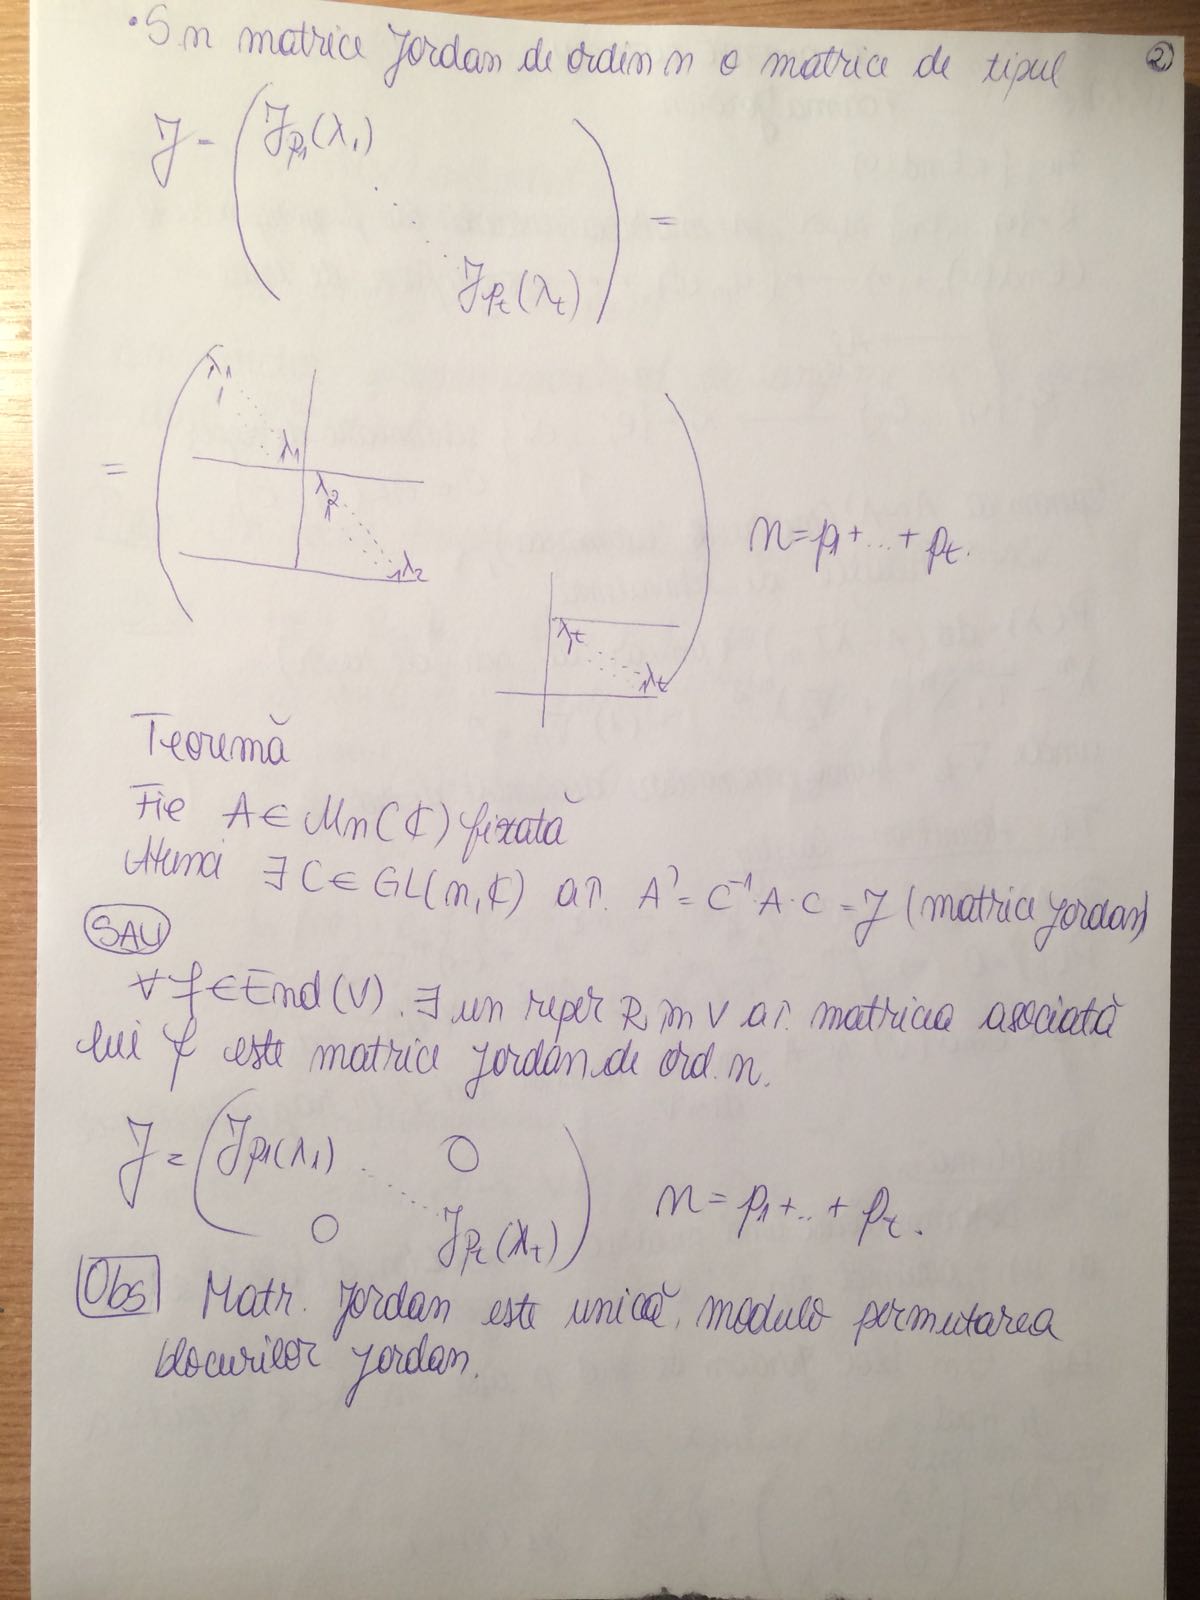 •S n matrice Jordan de ordin n o matrice de tipul
②
J = ( J_{p1}(λ1)
⋱
J_{pt}(λt) ) =
= ( λ1
1
λ1
λ2
1
1 λ2
λt
1
1 λt ) n = p1 + ... + pt.
Teoremă
Fie A ∈ Mn(ℂ) fixată
Atunci ∃ C ∈ GL(n,ℂ) aî. A' = C⁻¹·A·C = J (matrice Jordan)
SAU
∀ f ∈ End(V). ∃ un reper R în V aî. matricea asociată
lui f este matrice Jordan de ord. n.
J = ( J_{p1}(λ1) O
O J_{pt}(λt) ) n = p1 + .. + pt.
Obs Matr. Jordan este unică, modulo permutarea
blocurilor Jordan.